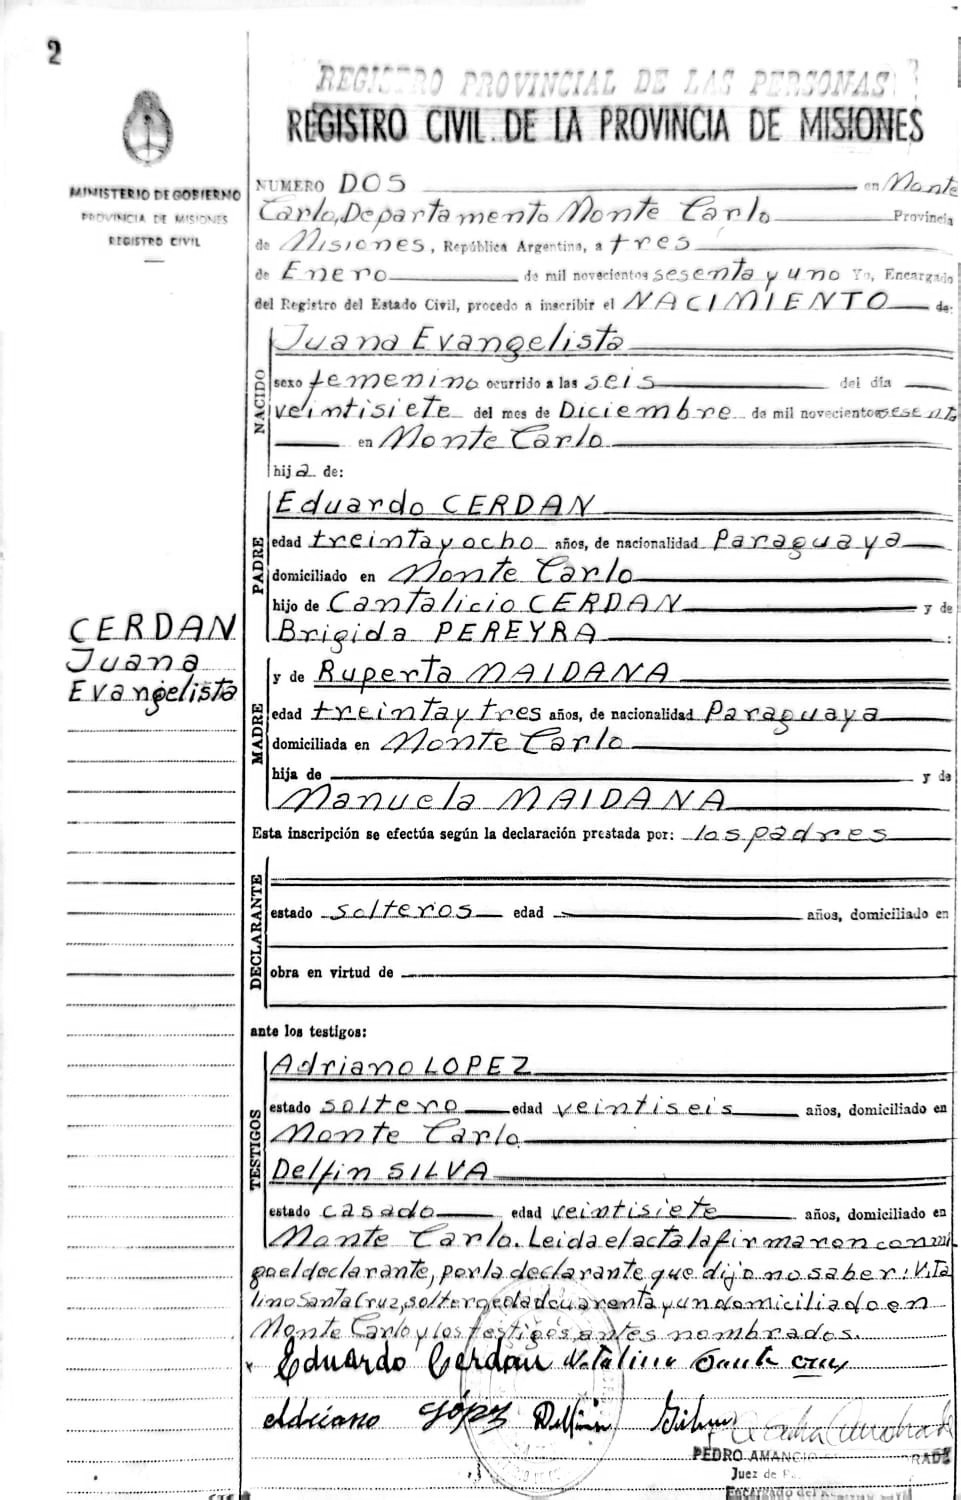 2
REGISTRO PROVINCIAL DE LAS PERSONAS
REGISTRO CIVIL DE LA PROVINCIA DE MISIONES
MINISTERIO DE GOBIERNO
PROVINCIA DE MISIONES
REGISTRO CIVIL
NUMERO DOS en Monte
Carlo, Departamento Monte Carlo Provincia
de Misiones, República Argentina, a tres
de Enero de mil novecientos sesenta y uno Yo, Encargado
del Registro del Estado Civil, procedo a inscribir el NACIMIENTO de:
NACIDO
Juana Evangelista
sexo femenino ocurrido a las seis del día
veintisiete del mes de Diciembre de mil novecientos sesenta
en Monte Carlo
hija de:
PADRE
Eduardo CERDAN
edad treinta y ocho años, de nacionalidad Paraguaya
domiciliado en Monte Carlo
hijo de Cantalicio CERDAN y de
Brigida PEREYRA :
CERDAN
Juana
Evangelista
MADRE
y de Ruperta MAIDANA
edad treinta y tres años, de nacionalidad Paraguaya
domiciliada en Monte Carlo
hija de y de
Manuela MAIDANA
Esta inscripción se efectúa según la declaración prestada por: los padres
DECLARANTE
estado solteros edad años, domiciliado en
obra en virtud de
ante los testigos:
TESTIGOS
Adriano LOPEZ
estado soltero edad veintiseis años, domiciliado en
Monte Carlo
Delfin SILVA
estado casado edad veintisiete años, domiciliado en
Monte Carlo. Leida el acta la firmaron conmi
go el declarante, por la declarante que dijo no saber: Nata
lino Santa Cruz, soltero edad cuarenta y un domiciliado en
Monte Carlo y los testigos antes nombrados.
Eduardo Cerdan Natalino Santa Cruz
Adriano López Delfin Silva
PEDRO AMANCIO
Juez de
Encargado del